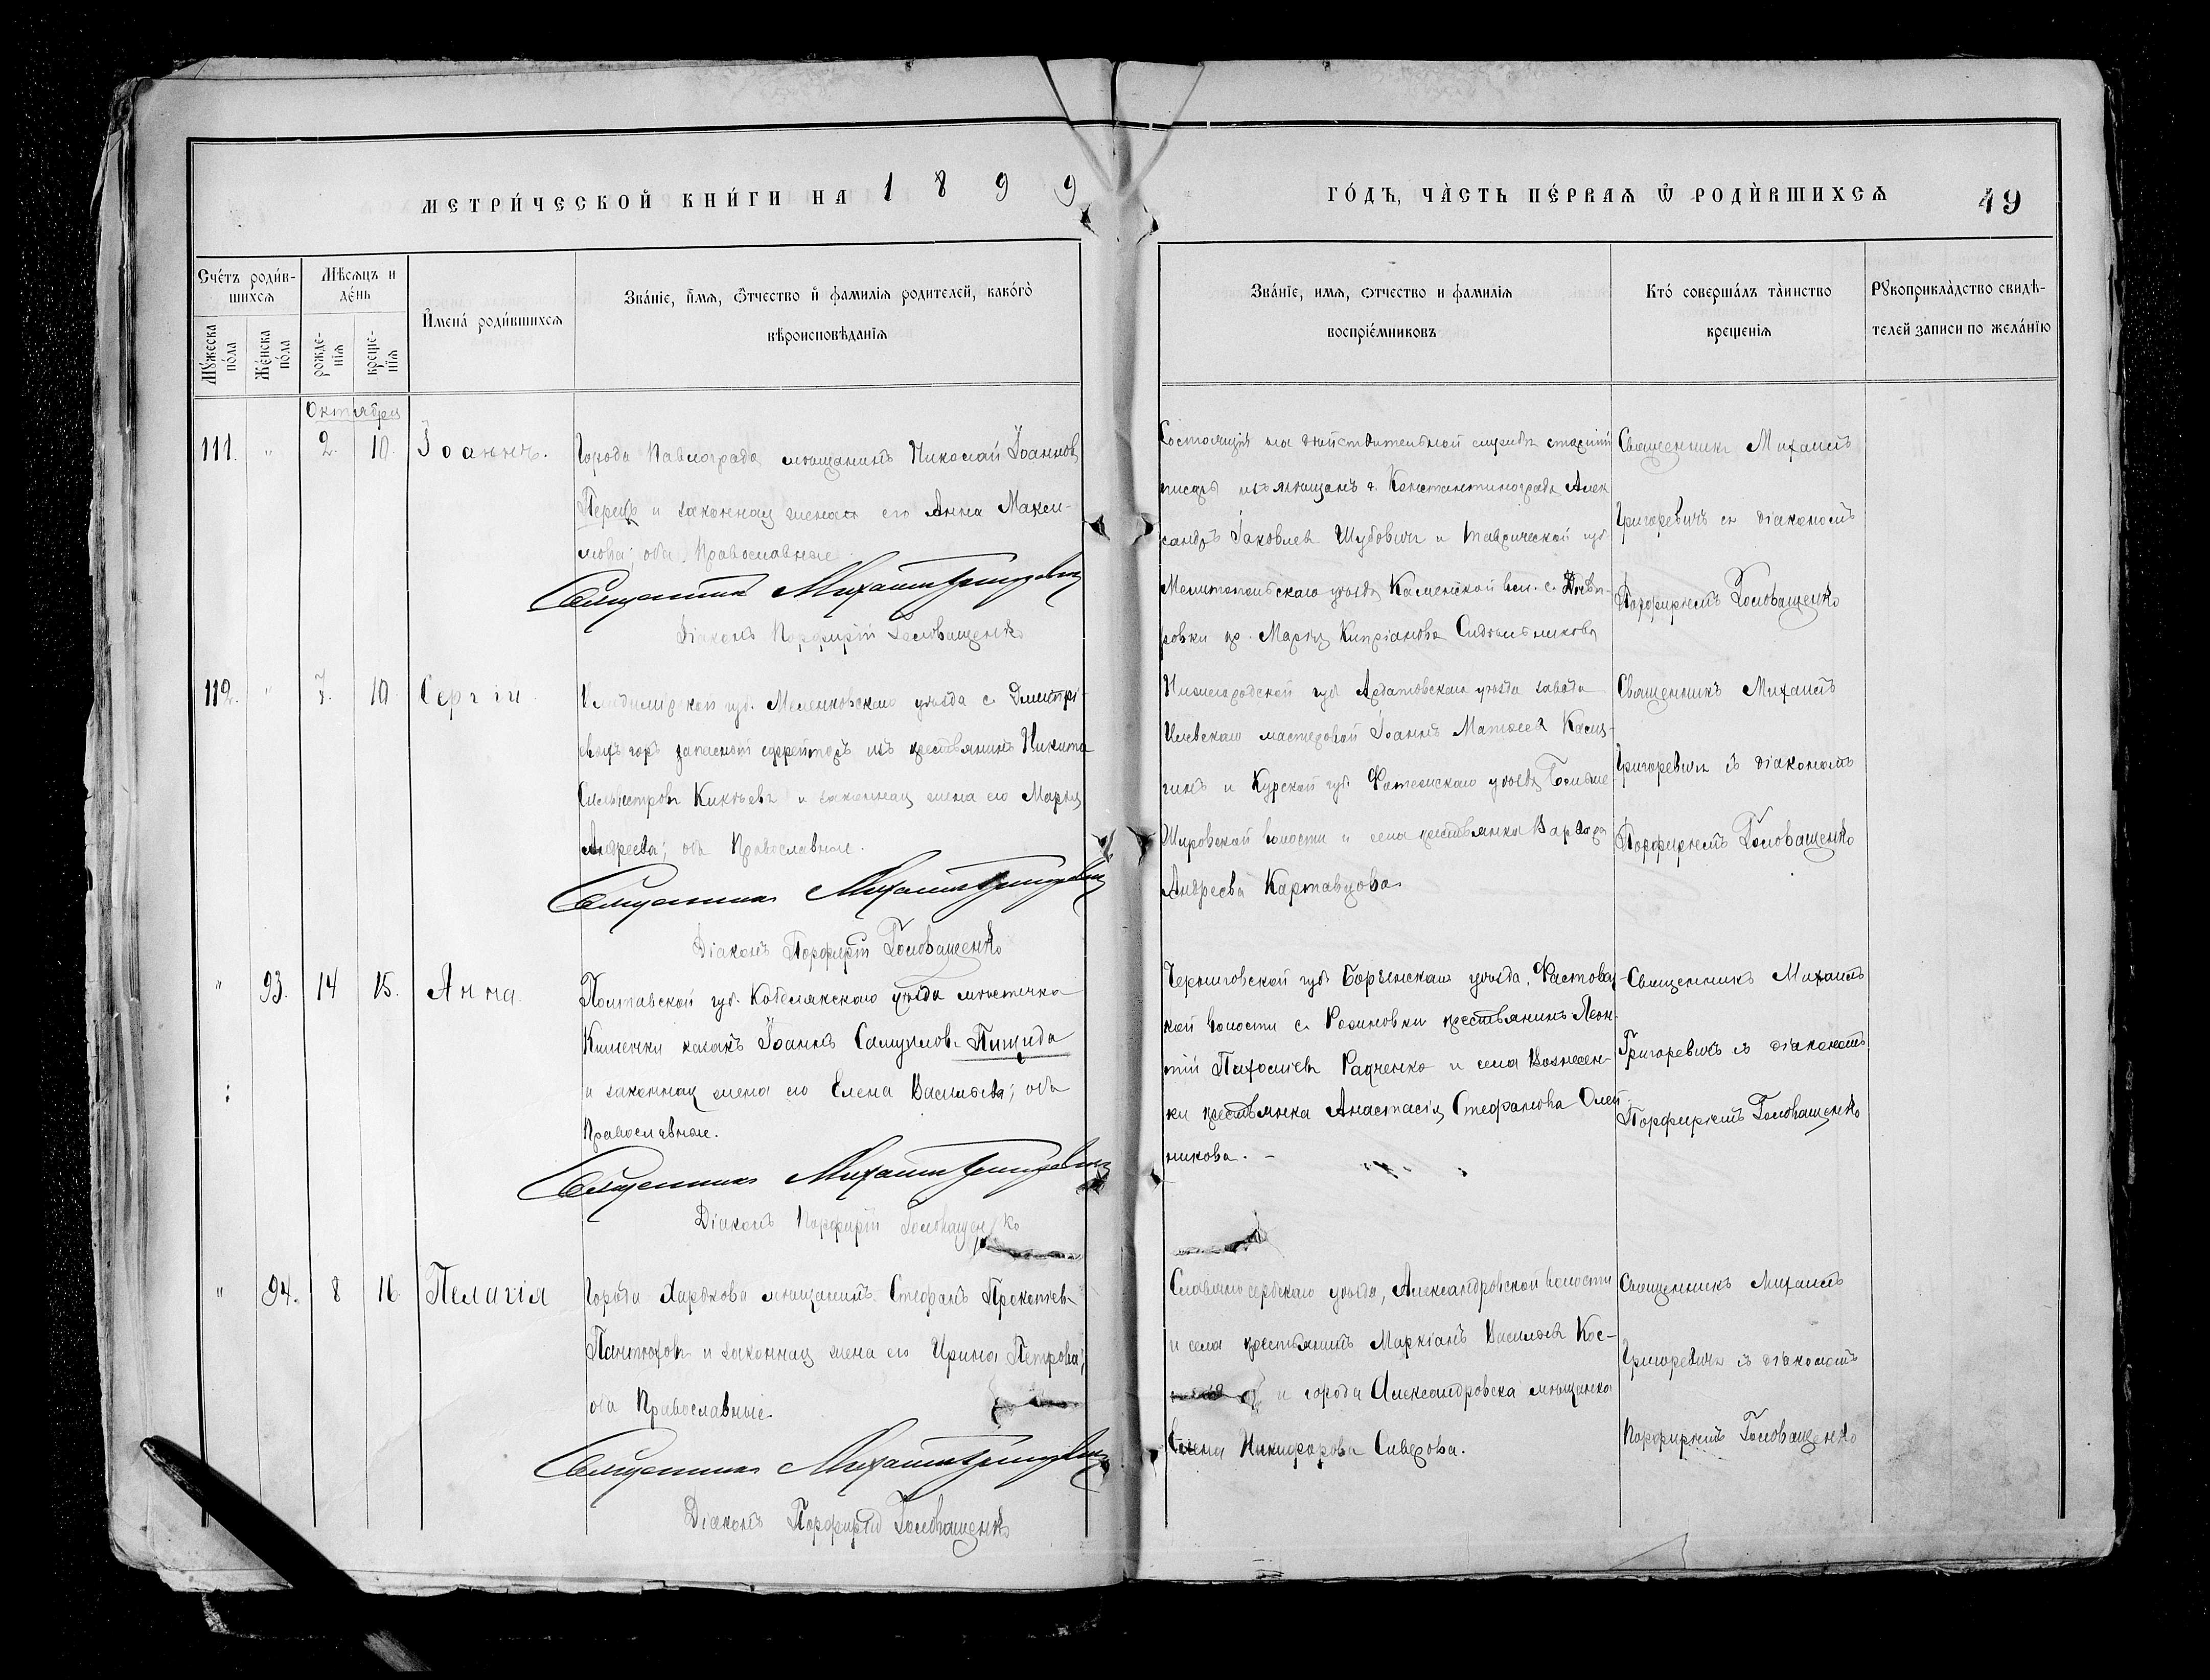 МЕТРИ́ЧЕСКОЙ КНИ́ГИ НА 1899
ГО́ДЪ, ЧА̀СТЬ ПЕ́РВАѦ Ѿ РОДЍВШИХСѦ
49
Сче́тъ роди́в-
шихсѧ
Мѣ́сѧцъ и
де́нь
И҆мена́ роди́вшихсѧ
Зва́нїе, и҆́мѧ, ѻ҆́тчество и҆ фамилїѧ родителей, како́гѡ
вѣроисповѣданїѧ
Мꙋ́жеска
по́ла
Же́нска
по́ла
рожде-
нїѧ
креще-
нїѧ
Зва́нїе, имѧ, ѻтчество и фамилїѧ
воспрїе́мниковъ
Кто́ совершалъ та̀инство
крещенїѧ
Рꙋкоприкла̀дство свидѣ-
телей записи по жела́нїю
Октября
111. " 2. 10. Іоаннъ.
Города Павлограда мѣщанинъ Николай Іоаннов
и законная жена его Анна Макси-
мова; оба Православные
Священникъ Михаилъ Григоревичъ
Діаконъ Порфирій Головащенко
Состоящій на дѣйствительной службѣ старшій
писарь изъ мѣщанъ г. Константинограда Алек
сандръ Іаковлев и Таврической губ.
Мелитопольскаго уѣзда Каменской вол. с.
ровки кр. Марія Кипріанова
Священникъ Михаилъ
Григоревичъ съ діакономъ
Порфиріемъ Головащенко
112. " 7. 10 Сергій.
Владимірской губ. Меленковскаго уѣзда с. Дмитрі-
евыхъ горъ запасной ефрейторъ изъ крестьянинъ Никита
Сильвестровъ и законная жена его Марія
Андреева; оба Православные.
Священникъ Михаилъ Григоревичъ
Діаконъ Порфирій Головащенко
Нижегородской губ. Ардатовскаго уѣзда завода
Илевскаго мастеровой Іоаннъ Матѳеев
гинъ и Курской губ. Фатежскаго уѣзда Больше-
Жировской волости и села крестьянка Варвара
Андреева Картавцова.
Священникъ Михаилъ
Григоревичъ съ діакономъ
Порфиріемъ Головащенко
" 93. 14 15. Анна.
Полтавской губ. Кобелякскаго уѣзда мѣстечка
Кишенки казакъ Іоаннъ Самуилов. Пищида
и законная жена его Елена Васильева; оба
Православные.
Священникъ Михаилъ Григоревичъ
Діаконъ Порфирій Головащенко
Черниговской губ. Борзенскаго уѣзда,
кой волости с. крестьянинъ Леон-
тій Пахоміев Радченко и села Вознесен-
ки крестьянка Анастасія Стефанова Олей
никова. –
Священникъ Михаилъ
Григоревичъ съ діакономъ
Порфиріемъ Головащенко
" 94. 8 16. Пелагія
Города Харькова мѣщанинъ Стефанъ Прокопіевъ
Пантюховъ и законная жена его Ирина Петрова;
оба Православные.
Священникъ Михаилъ Григоревичъ
Діаконъ Порфирій Головащенко
Славяносербскаго уѣзда, Александровской волости
и села крестьянинъ Маркіанъ Васильев Кос-
и города Александровска мѣщанка
Елена Никифорова Сиверова.
Священникъ Михаилъ
Григоревичъ съ діакономъ
Порфиріемъ Головащенко